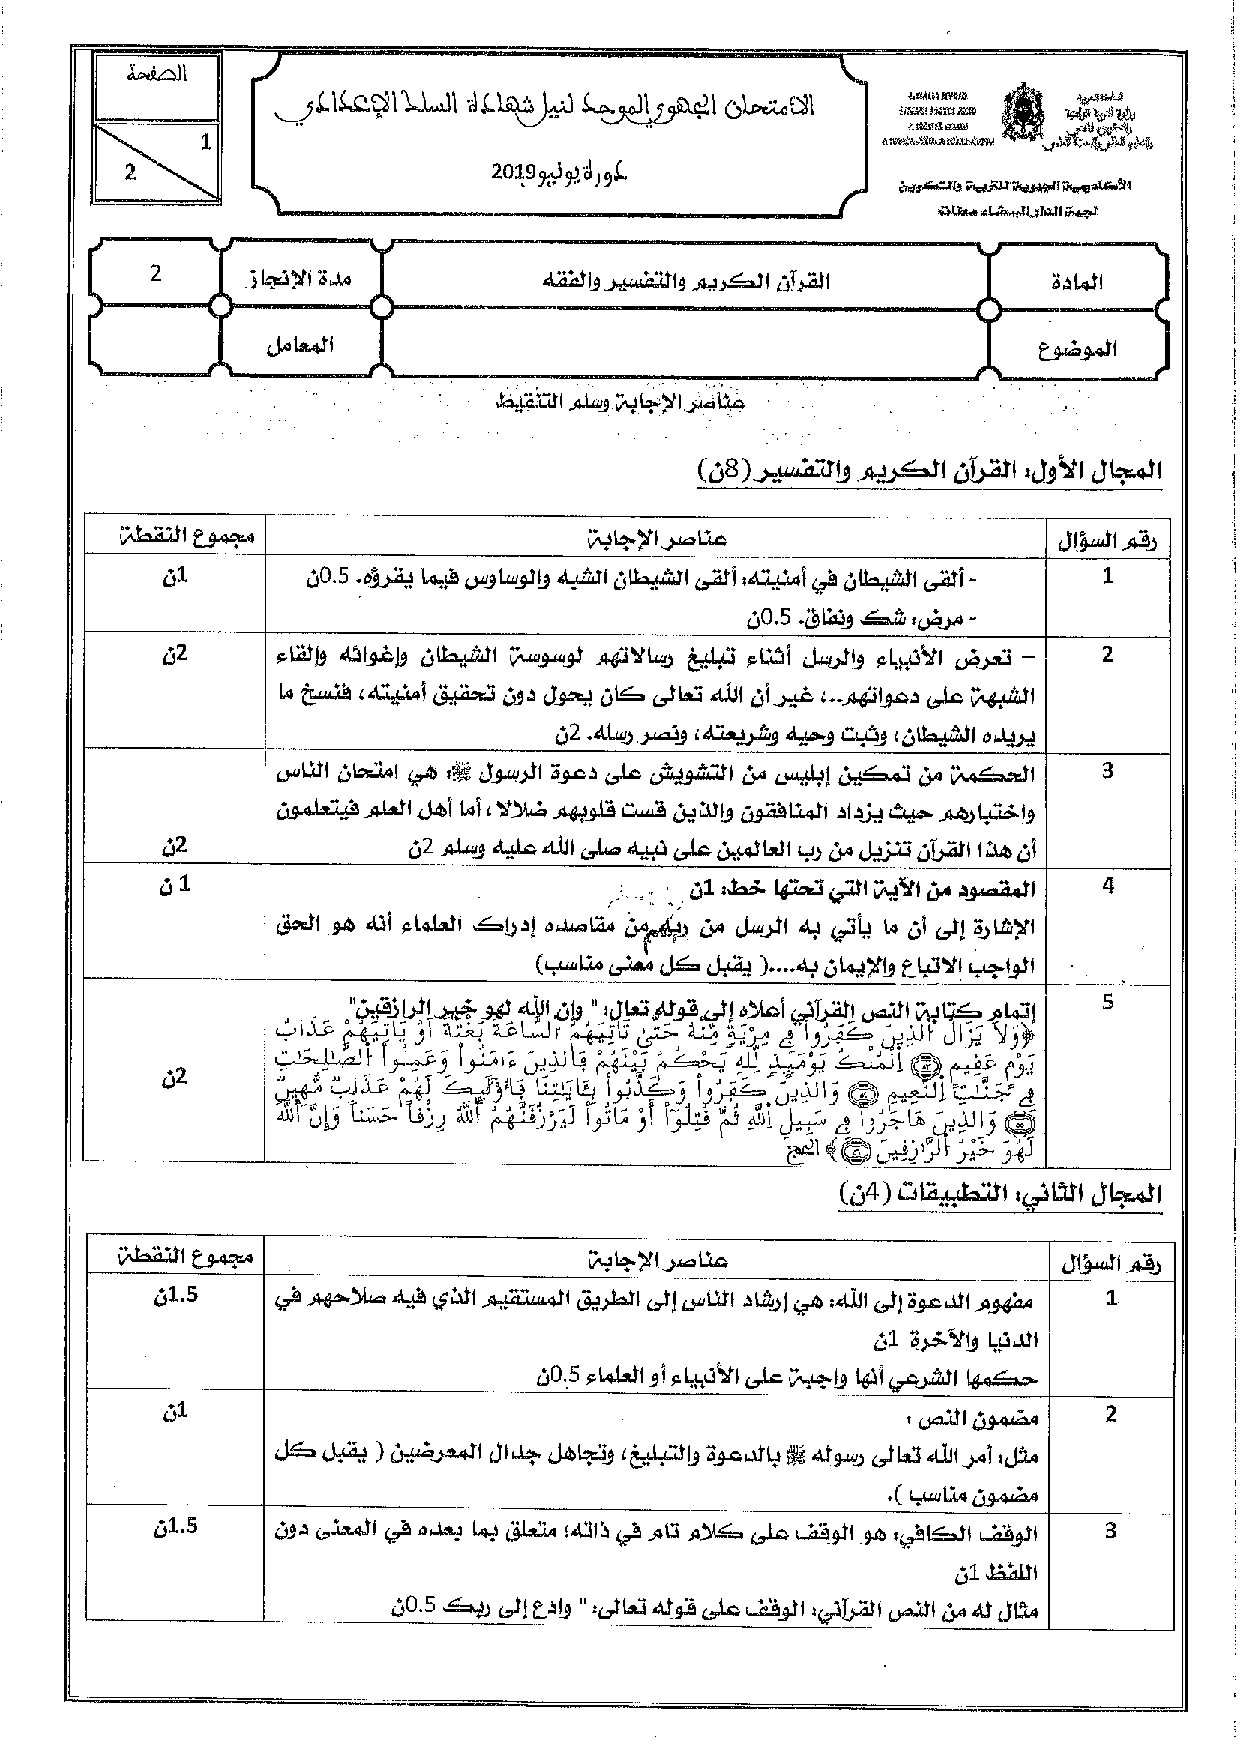 الصفحة
1
2
الامتحان الجهوي الموحد لنيل شهادة السلك الإعدادي
دورة يونيو 2019
الأكاديمية الجهوية للتربية والتكوين
لجهة الدار البيضاء سطات
المادة
القرآن الكريم والتفسير والفقه
مدة الإنجاز
2
الموضوع
المعامل
عناصر الإجابة وسلم التنقيط
المجال الأول: القرآن الكريم والتفسير (8ن)
رقم السؤال
عناصر الإجابة
مجموع النقطة
1
- ألقى الشيطان في أمنيته: ألقى الشيطان الشبه والوساوس فيما يقرؤه. 0.5ن
1ن
- مرض: شك ونفاق. 0.5ن
2
– تعرض الأنبياء والرسل أثناء تبليغ رسالاتهم لوسوسة الشيطان وإغوائه وإلقاء
2ن
الشبهة على دعواتهم...، غير أن الله تعالى كان يحول دون تحقيق أمنيته، فنسخ ما
يريده الشيطان، وثبت وحيه وشريعته، ونصر رسله. 2ن
3
الحكمة من تمكين إبليس من التشويش على دعوة الرسول ﷺ: هي امتحان الناس
واختبارهم حيث يزداد المنافقون والذين قست قلوبهم ضلالا، أما أهل العلم فيتعلمون
أن هذا القرآن تنزيل من رب العالمين على نبيه صلى الله عليه وسلم 2ن
2ن
4
المقصود من الآية التي تحتها خط: 1ن
1ن
الإشارة إلى أن ما يأتي به الرسل من ربهم من مقاصده إدراك العلماء أنه هو الحق
الواجب الاتباع والإيمان به....( يقبل كل معنى مناسب)
5
إتمام كتابة النص القرآني أعلاه إلى قوله تعالى: " وإن الله لهو خير الرازقين"
﴿وَلَا يَزَالُ الَّذِينَ كَفَرُوا فِي مِرْيَةٍ مِّنْهُ حَتَّىٰ تَأْتِيَهُمُ السَّاعَةُ بَغْتَةً أَوْ يَأْتِيَهُمْ عَذَابُ
يَوْمٍ عَقِيمٍ ۝ الْمُلْكُ يَوْمَئِذٍ لِّلَّهِ يَحْكُمُ بَيْنَهُمْ فَالَّذِينَ ءَامَنُوا وَعَمِلُوا الصَّالِحَاتِ
فِي جَنَّاتِ النَّعِيمِ ۝ وَالَّذِينَ كَفَرُوا وَكَذَّبُوا بِآيَاتِنَا فَأُولَٰئِكَ لَهُمْ عَذَابٌ مُّهِينٌ
2ن
۝ وَالَّذِينَ هَاجَرُوا فِي سَبِيلِ اللَّهِ ثُمَّ قُتِلُوا أَوْ مَاتُوا لَيَرْزُقَنَّهُمُ اللَّهُ رِزْقًا حَسَنًا وَإِنَّ اللَّهَ
لَهُوَ خَيْرُ الرَّازِقِينَ ۝﴾ الحج
المجال الثاني: التطبيقات (4ن)
رقم السؤال
عناصر الإجابة
مجموع النقطة
1
مفهوم الدعوة إلى الله: هي إرشاد الناس إلى الطريق المستقيم الذي فيه صلاحهم في
1.5ن
الدنيا والآخرة 1ن
حكمها الشرعي أنها واجبة على الأنبياء أو العلماء 0.5ن
2
مضمون النص :
1ن
مثل: أمر الله تعالى رسوله ﷺ بالدعوة والتبليغ، وتجاهل جدال المعرضين ( يقبل كل
مضمون مناسب ).
3
الوقف الكافي: هو الوقف على كلام تام في ذاته؛ متعلق بما بعده في المعنى دون
1.5ن
اللفظ 1ن
مثال له من النص القرآني: الوقف على قوله تعالى: " وادع إلى ربك 0.5ن